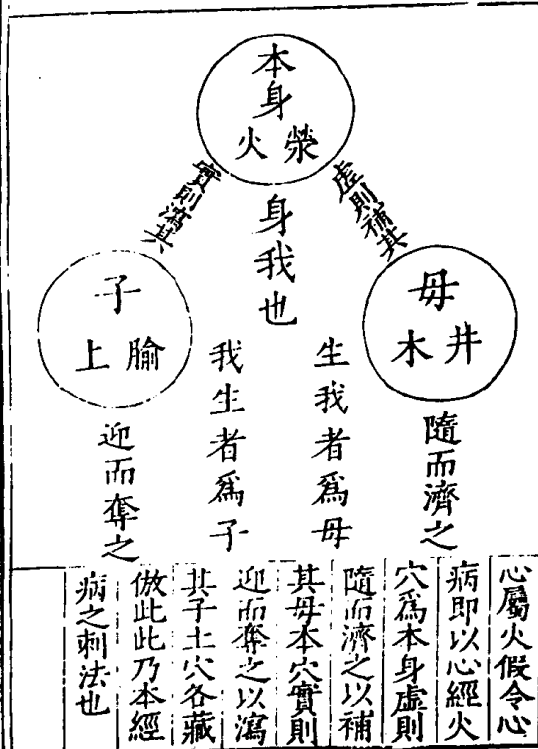 本身
滎火
虛則補其
實則瀉其
身我也
母
井木
子
腧上
隨而濟之
生我者爲母
我生者爲子
迎而奪之
心屬火假令心
病即以心經火
穴爲本身虛則
隨而濟之以補
其母本穴實則
迎而奪之以瀉
其子土穴各藏
倣此此乃本經
病之刺法也